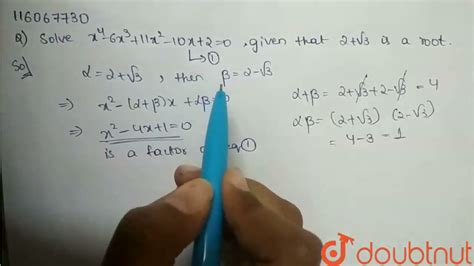 116067730
Q) Solve x⁴-6x³+11x²-10x+2=0, given that 2+√3 is a root.
→①
Sol
α=2+√3, then β=2-√3
⇒ x²-(α+β)x+αβ=0
⇒ x²-4x+1=0
is a factor of eq①
α+β = 2+√3+2-√3 = 4
αβ = (2+√3)(2-√3)
= 4-3 = 1
doubtnut